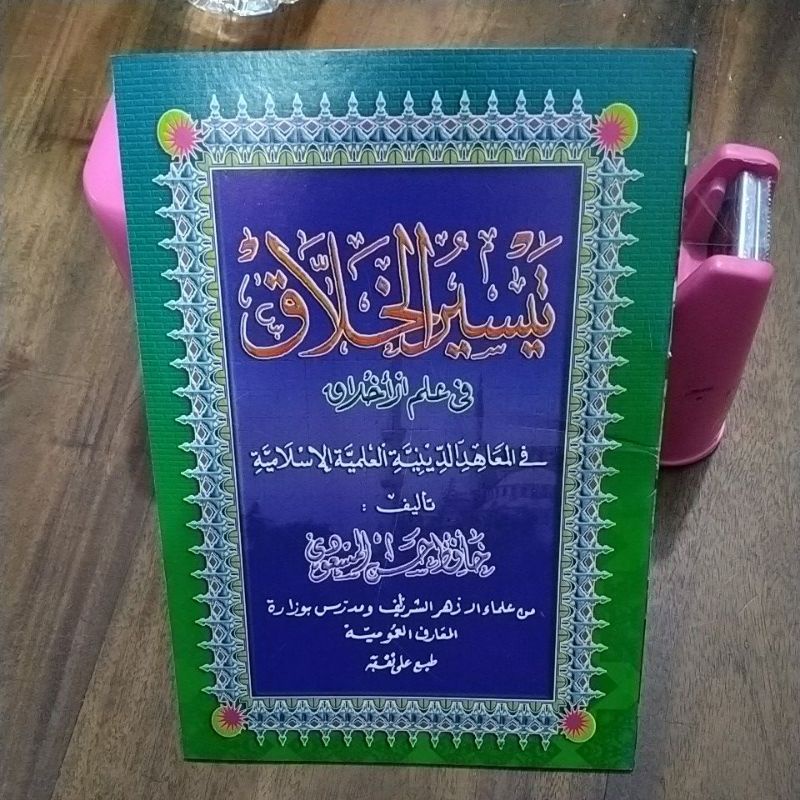 تَيْسِيْرُ الْخَلَّاقْ
في علم الأخلاق
في المَعَاهِدِ الدِّيْنِيَّةِ العِلْمِيَّةِ الإِسْلَامِيَّةِ
تأليف :
حافظ حسن المسعودي
من علماء الازهر الشريف ومدرس بوزارة
المعارف العمومية
طبع على نفقة